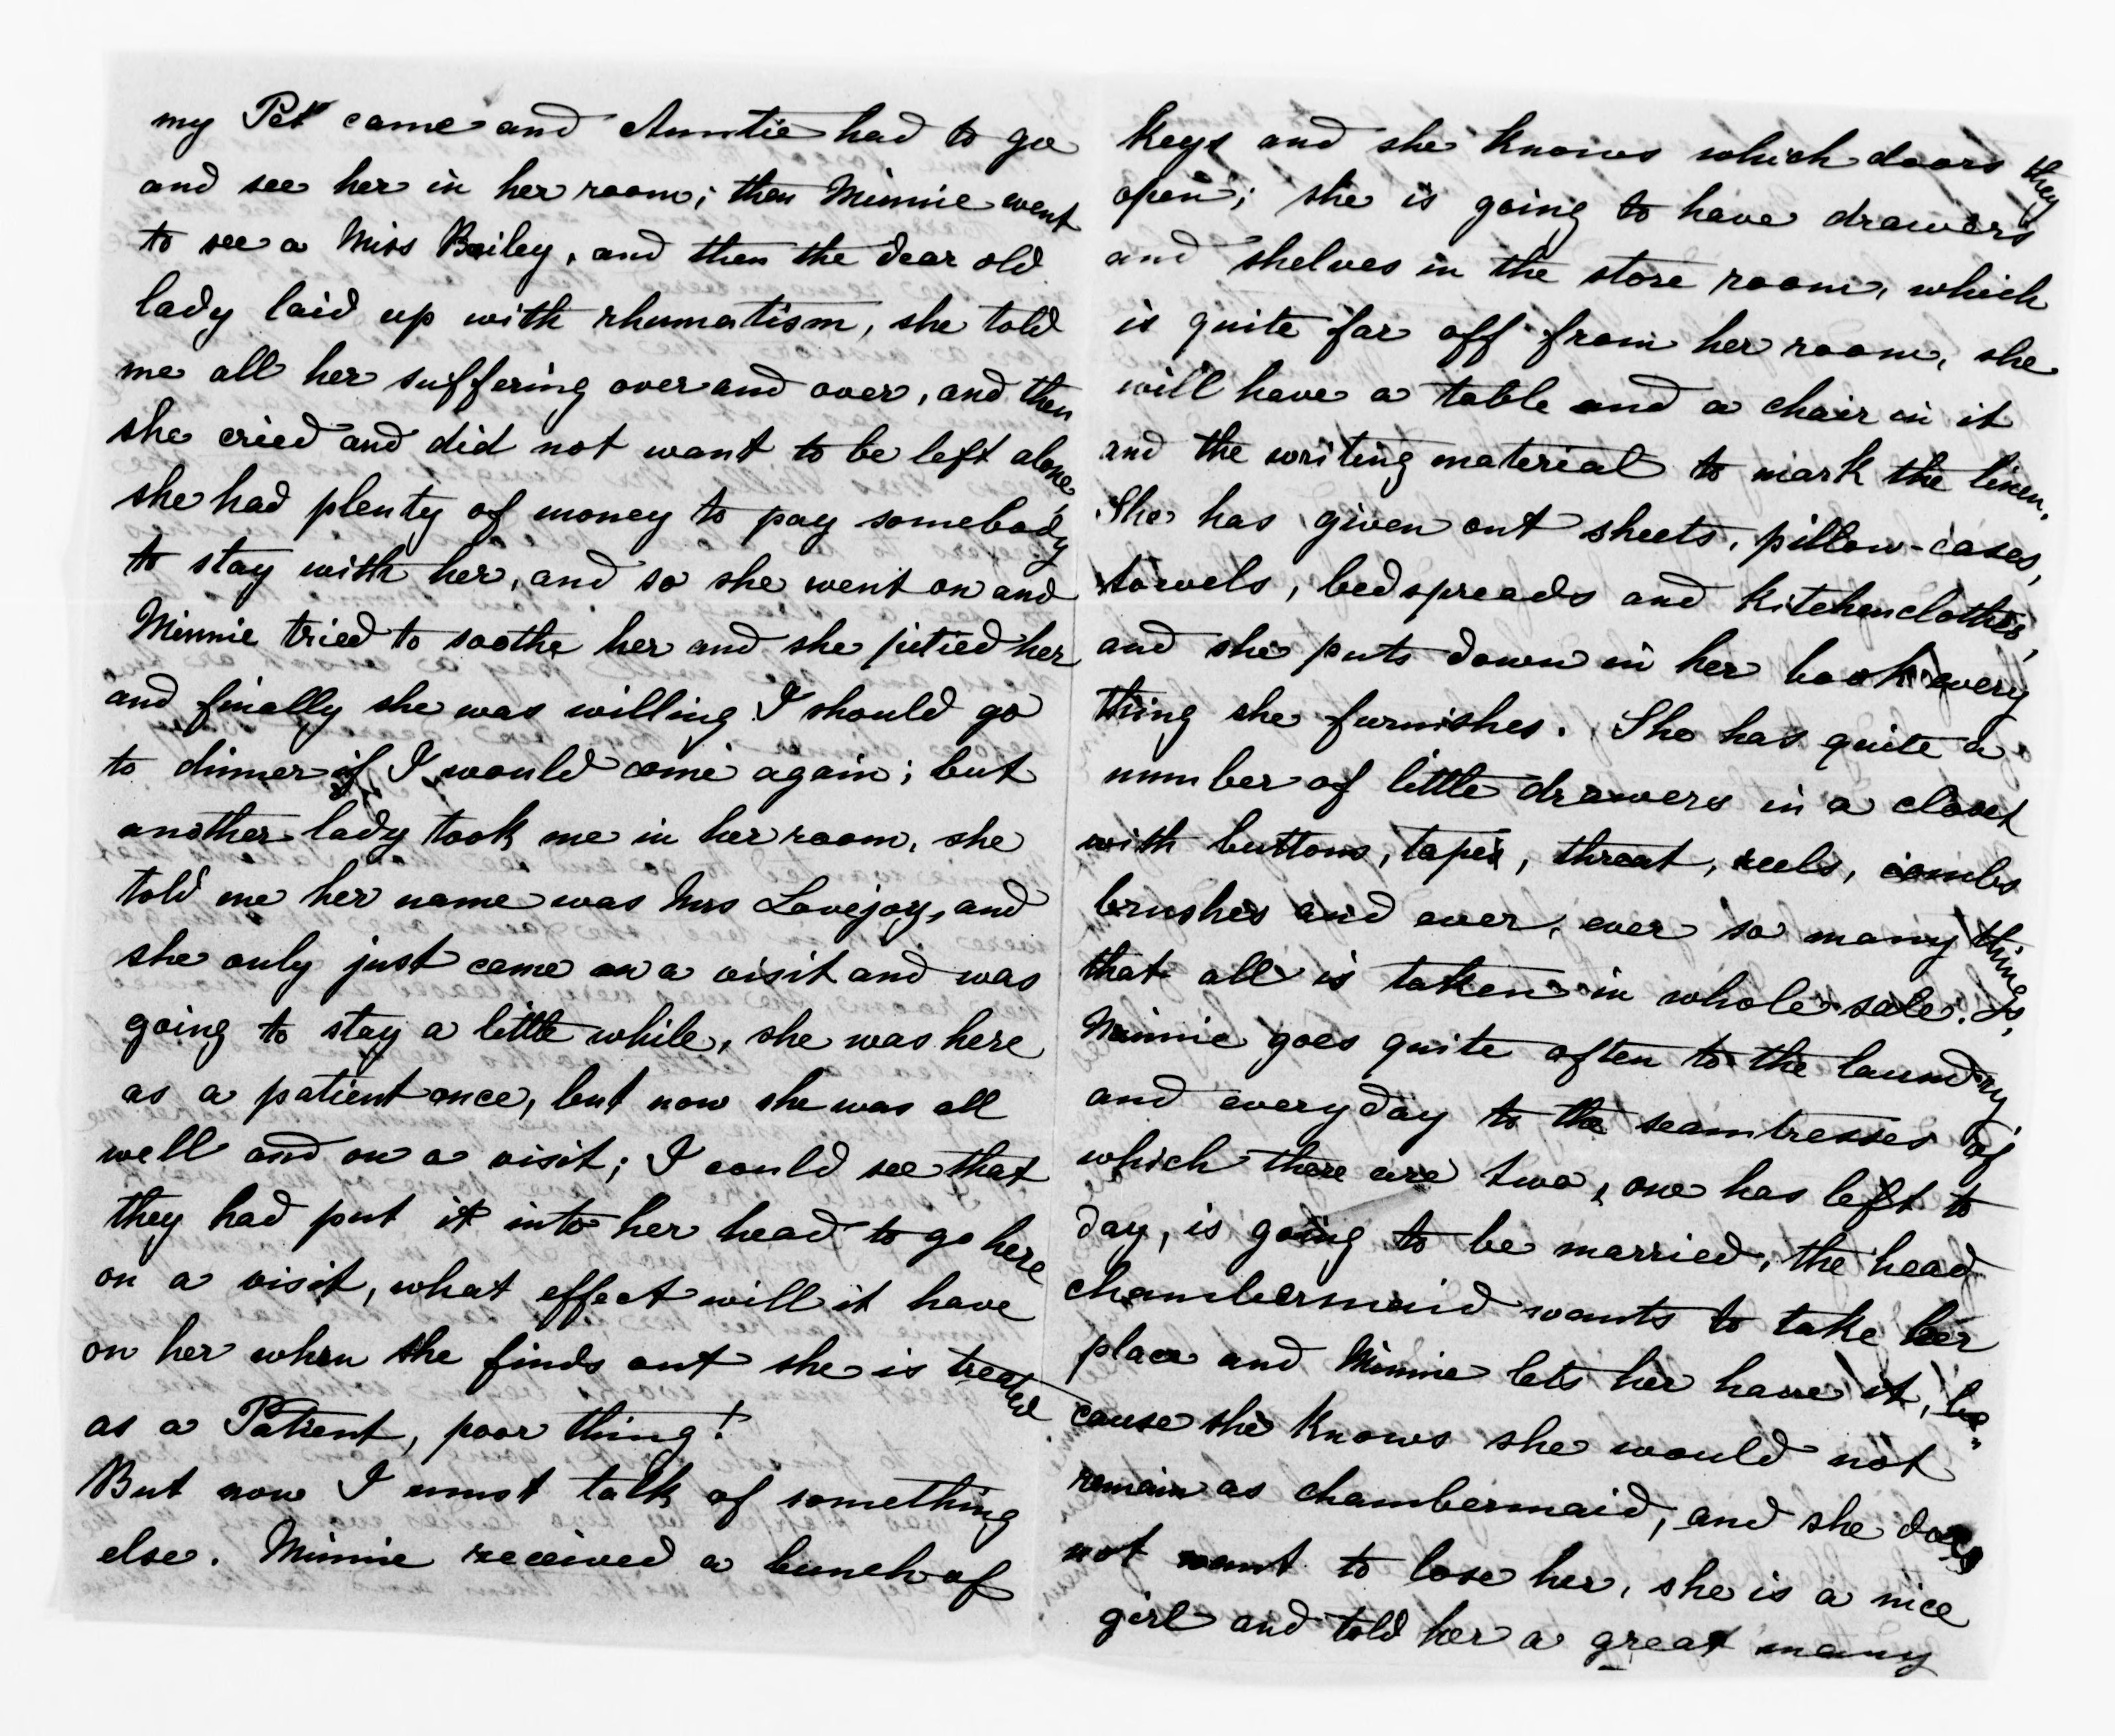 my Pet came and Auntie had to go
and see her in her room; then Minnie went
to see a Miss Bailey, and then the dear old
lady laid up with rhumatism, she told
me all her suffering over and over, and then
she cried and did not want to be left alone,
she had plenty of money to pay somebody
to stay with her, and so she went on and
Minnie tried to soothe her and she pitied her
and finally she was willing I should go
to dinner if I would come again; but
another lady took me in her room, she
told me her name was Mrs Lovejoy, and
she only just came on a visit and was
going to stay a little while, she was here
as a patient once, but now she was all
well and on a visit; I could see that
they had put it into her head to go here
on a visit, what effect will it have
on her when she finds out she is treated
as a Patient, poor thing!
But now I must talk of something
else. Minnie received a bunch of
keys and she knows which doors they
open; she is going to have drawers
and shelves in the store room, which
is quite far off from her room, she
will have a table and a chair in it
and the writing material to mark the linen.
She has given out sheets, pillow-cases,
towels, bedspreads and kitchenclothes,
and she puts down in her book every
thing she furnishes. She has quite a
number of little drawers in a closet
with buttons, tapes, threat, reels, combs
brushes and ever, ever so many things,
that all is taken in whole sale.
Minnie goes quite often to the laundry
and everyday to the seamtresses of
which there are two, one has left to
day, is going to be married, the head
chambermaid wants to take her
place and Minnie lets her have it, be-
cause she knows she would not
remain as chambermaid, and she does
not want to lose her, she is a nice
girl and told her a great many